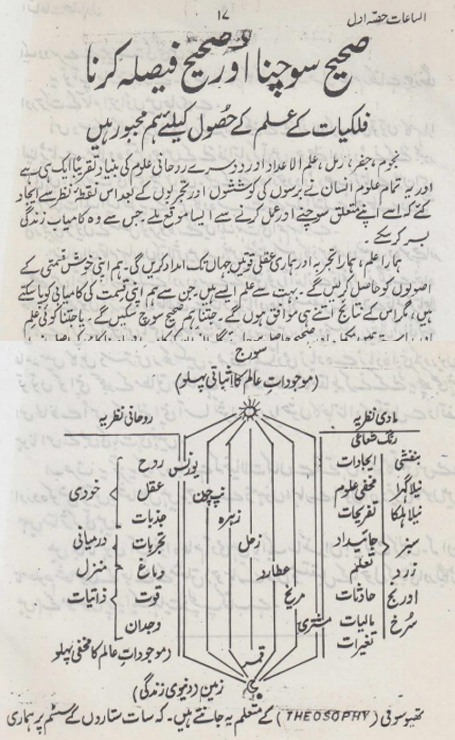 الساعات حصّہ اوّل
۱۷
صحیح سوچنا اور صحیح فیصلہ کرنا
فلکیات کے علم کے حُصول کیلئے ہم مجبور ہیں
نجوم، جفر، رمل، علم الاعداد اور دوسرے روحانی علوم کی بنیاد تقریباً ایک ہی ہے
اور یہ تمام علوم انسان نے برسوں کی کوششوں اور تجربوں کے بعد اس نقطۂ نظر سے ایجاد
کئے کہ اسے اپنے متعلق سوچنے اور عمل کرنے سے ایسا موقع ملے جس سے وہ کامیاب زندگی
بسر کر سکے۔
ہمارا علم، ہمارا تجربہ اور ہماری عقلی قوتیں جہاں تک امداد کریں گی۔ ہم اپنی خوش قسمتی کے
اصولوں کو حاصل کریں گے۔ بہت سے علم ایسے ہیں جن سے ہم اپنی قسمت کی کامیابی کو پا سکتے
ہیں، مگر اس کے نتائج اتنے ہی موافق ہوں گے۔ جتنا ہم صحیح سوچ سکیں گے۔ یا جتنا کوئی علم
سورج
(موجوداتِ عالم کا اثباتی پہلو)
روحانی نظریہ
مادی نظریہ
رنگ شعاعی
خودی
درمیانی
منزل
ذاتیات
روح
عقل
جذبات
تجربات
دماغ
قوت
وجدان
یورنس
نپچون
زہرہ
زحل
عطارد
مریخ
مشتری
قمر
ایجادات
مخفی علوم
تفریحات
جائیداد
تعلقہ
حادثات
مالیات
تغیرات
بنفشی
نیلا گہرا
نیلا ہلکا
سبز
زرد
اورنج
سُرخ
(موجوداتِ عالم کا مخفی پہلو
زمین (دنیوی زندگی)
تھیوسوفی (THEOSOPHY) کے متعلم یہ جانتے ہیں۔ کہ سات ستاروں کے سسٹم پر ہماری